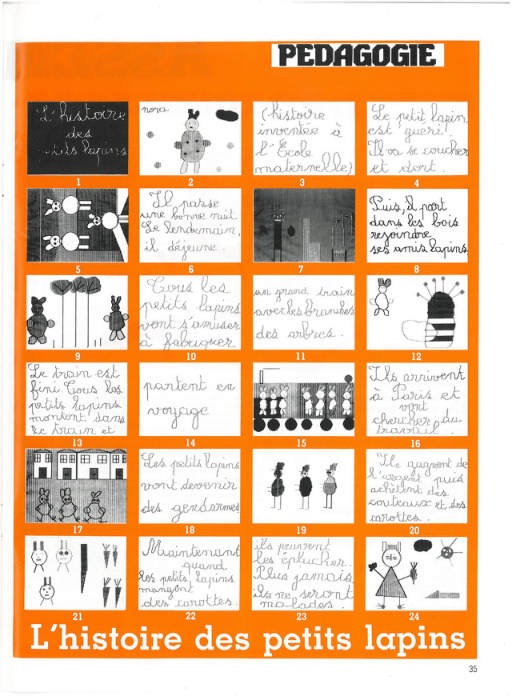 PEDAGOGIE
L'histoire
des
petits lapins
nova
(histoire
inventée à
l'École
maternelle)
Le petit lapin
est guéri.
Il va se coucher
et dort.
1
2
3
4
Il passe
une bonne nuit
Le lendemain,
il déjeune.
Puis, il part
dans les bois
rejoindre
ses amis lapins
5
6
7
8
Tous les
petits lapins
vont s'amuser
à fabriquer
un grand train
avec les branches
des arbres.
9
10
11
12
Le train est
fini Tous les
petits lapins
montent dans
le train et
partent en
voyage
Ils arrivent
à Paris et
vont
chercher du
travail.
13
14
15
16
Les petits lapins
vont devenir
des gendarmes
Ils gagnent de
l'argent puis
achètent des
couteaux et des
carottes.
17
18
19
20
Maintenant
quand
les petits lapins
mangent
des carottes.
ils peuvent
les éplucher.
Plus jamais
ils ne seront
malades.
21
22
23
24
L'histoire des petits lapins
35